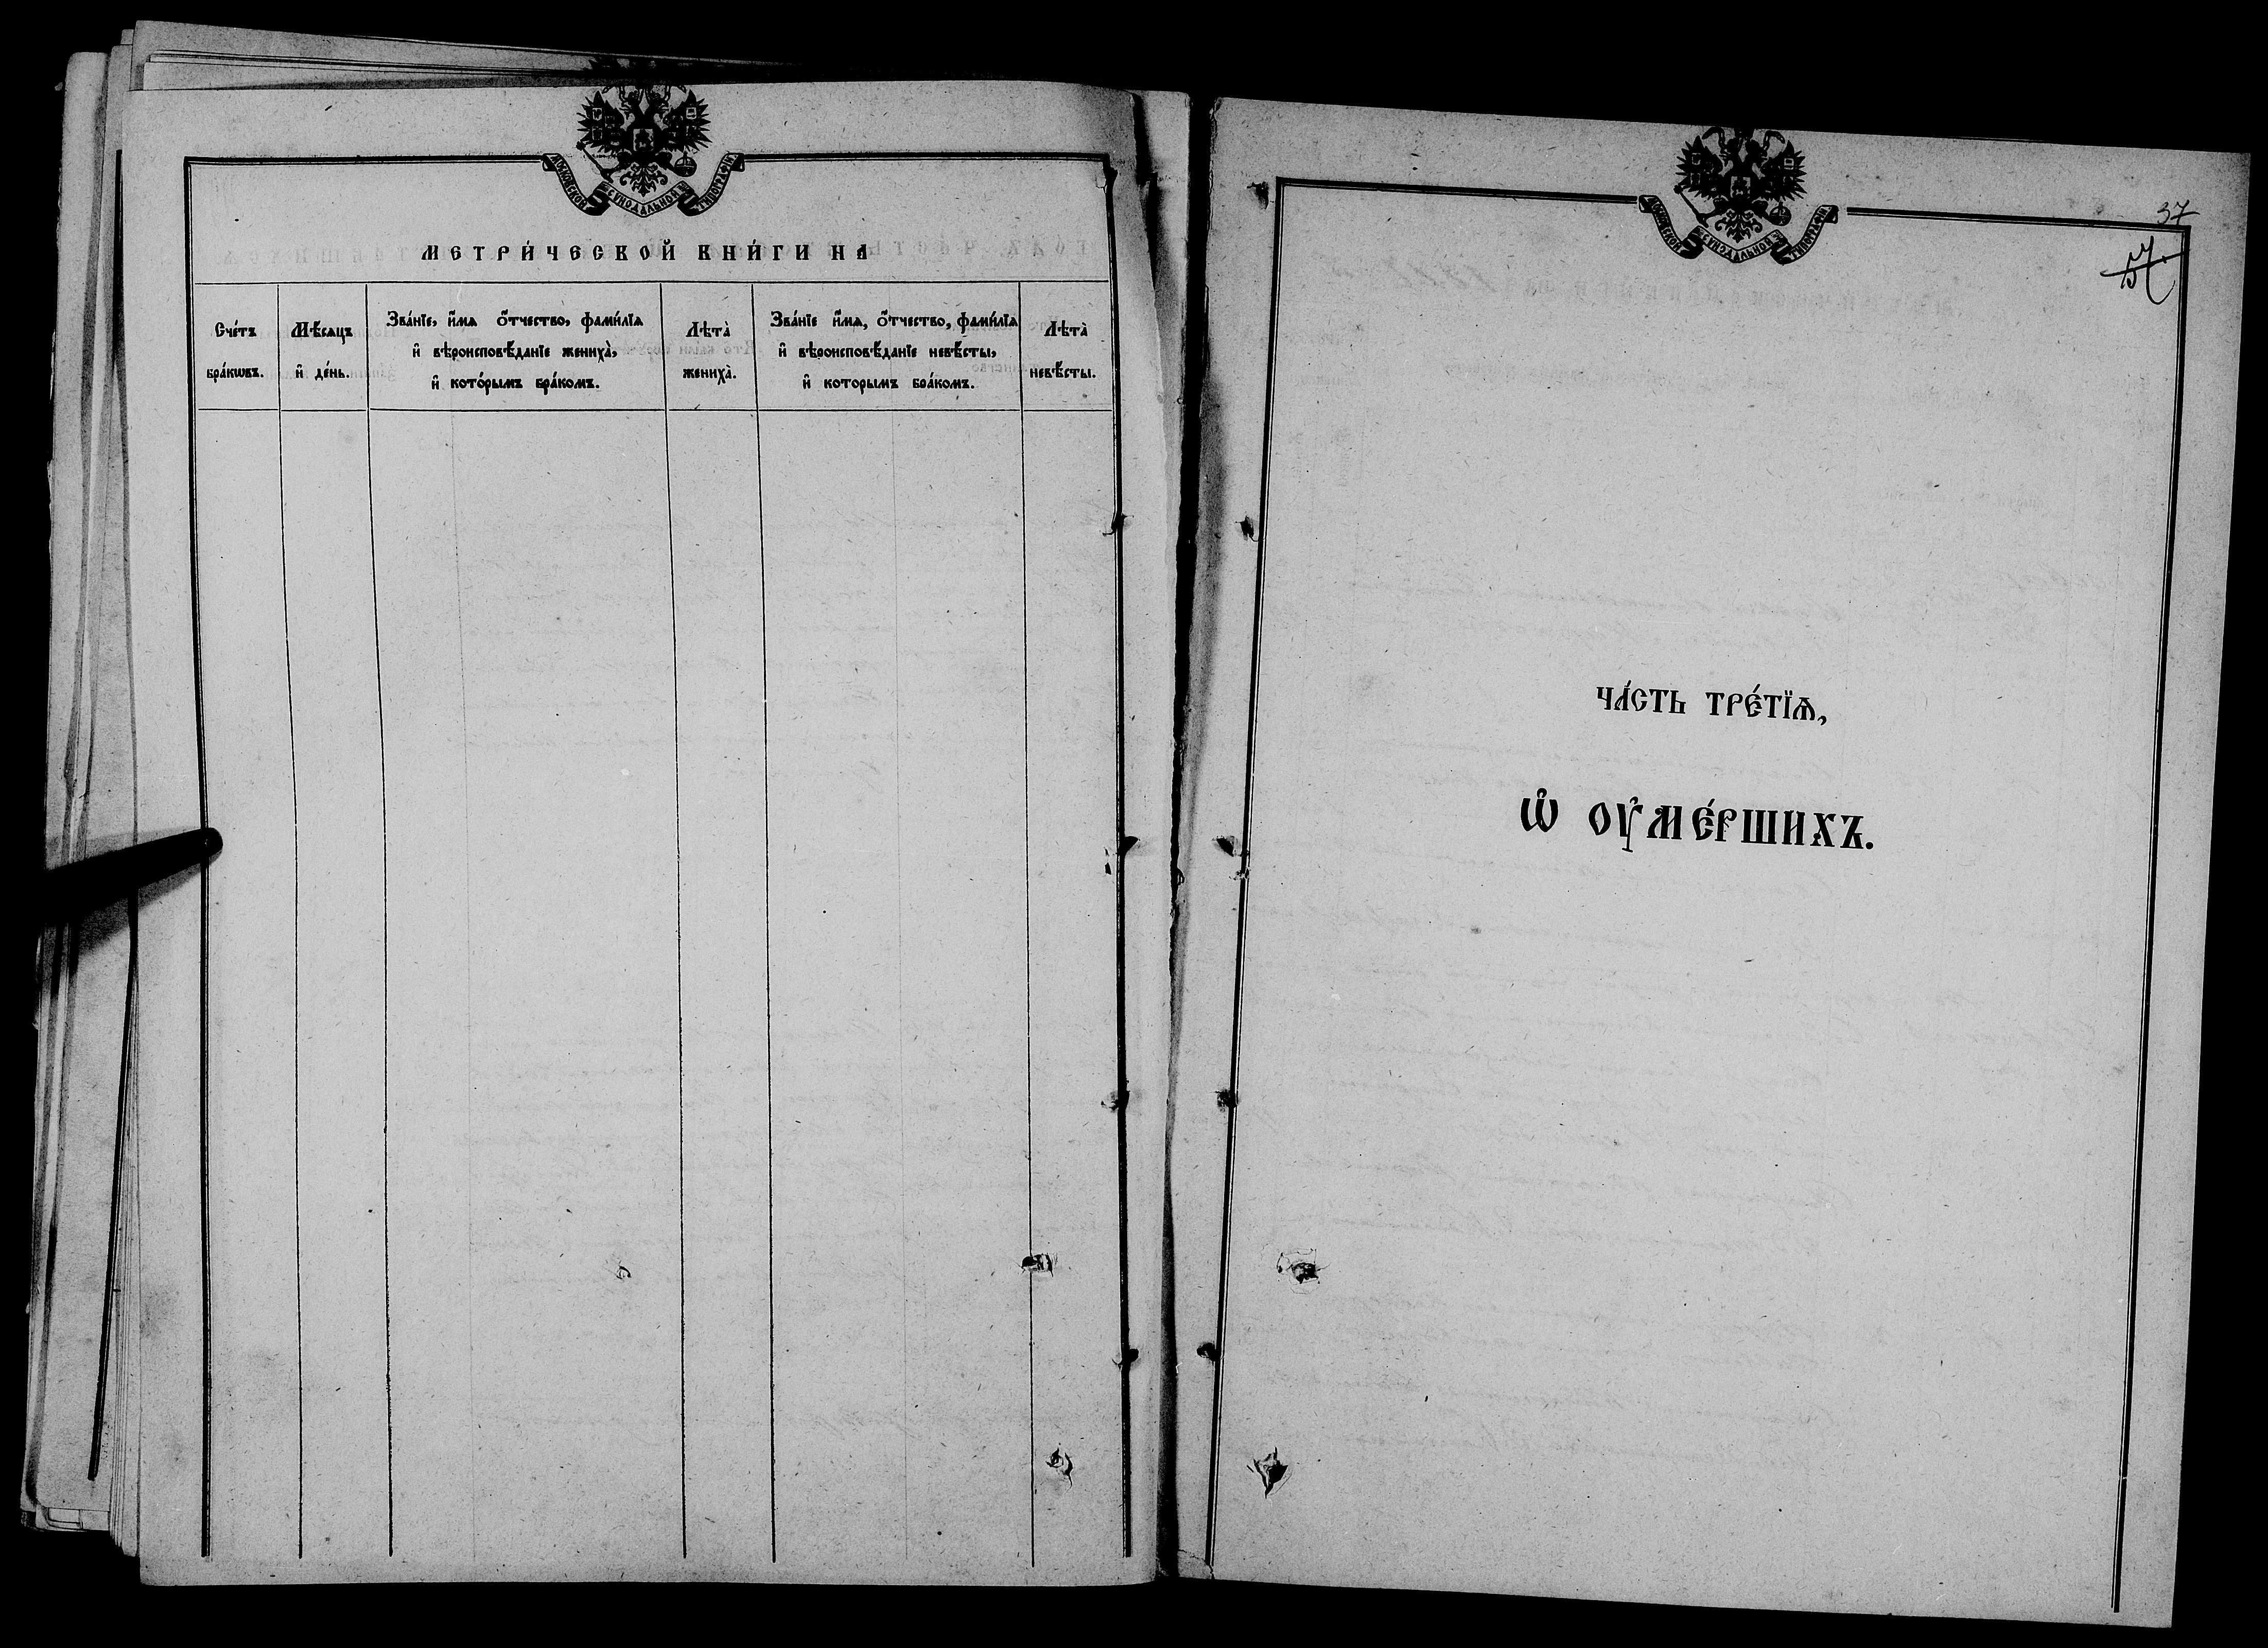 МОСКОВСКОЙ СѴНОДАЛЬНОЙ ТИПОГРАФІИ
МЕТРИ́ЧЕСКОЙ КНИ́ГИ НА
Сче́тъ
бра́кѡвъ.
Мѣ́сяцъ
и҆ де́нь.
Зва́нїе, и҆́мѧ ѻ҆́тчество, фами́лїѧ
и҆ вѣроисповѣ́данїе женихà,
и҆ кото́рымъ бра́комъ.
Лѣтà
женихà.
Зва́нїе и҆́мѧ, ѻ҆́тчество, фами́лїѧ
и҆ вѣроисповѣ́данїе невѣ́сты,
и҆ которымъ бра́комъ.
Лѣтà
невѣ́сты.
МОСКОВСКОЙ СѴНОДАЛЬНОЙ ТИПОГРАФІИ
37
57
ЧА́СТЬ ТРЕ́ТЇѦ,
Ѡ҆ ОУ҆МЕ́РШИХЪ.